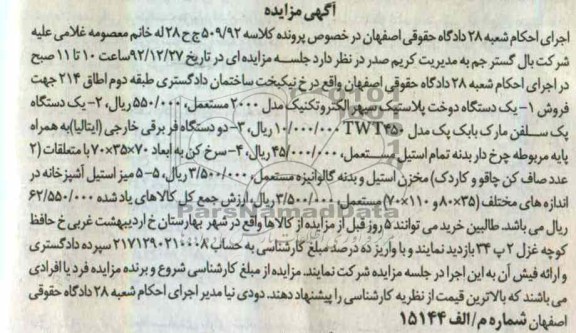 آگهی مزایده
اجرای احکام شعبه ۲۸ دادگاه حقوقی اصفهان در خصوص پرونده کلاسه ۵۰۹/۹۲ ج ح ۲۸ له خانم معصومه غلامی علیه
شرکت بال گستر جم به مدیریت کریم صدر در نظر دارد جلسه مزایده ای در تاریخ ۹۲/۱۲/۲۷ ساعت ۱۰ تا ۱۱ صبح
در اجرای احکام شعبه ۲۸ دادگاه حقوقی اصفهان واقع در خ نیکبخت ساختمان دادگستری طبقه دوم اطاق ۲۱۴ جهت
فروش ۱- یک دستگاه دوخت پلاستیک سپهر الکتروتکنیک مدل ۲۰۰۰ مستعمل، ۵۵۰/۰۰۰ ریال، ۲- یک دستگاه
پک سلفن مارک بابک پک مدل TWT۴۵۰ ۱۰/۰۰۰/۰۰۰ ریال، ۳- دو دستگاه فر برقی خارجی (ایتالیا) به همراه
پایه مربوطه چرخ دار بدنه تمام استیل مستعمل، ۴۵/۰۰۰/۰۰۰ ریال، ۴- سرخ کن به ابعاد ۷۰×۳۵×۷۰ با متعلقات (۲
عدد صاف کن چاقو و کاردک) مخزن استیل و بدنه گالوانیزه مستعمل، ۳/۵۰۰/۰۰۰ ریال، ۵- ۵ میز استیل آشپزخانه در
اندازه های مختلف (۳۵×۸۰ و ۱۱۰×۷۰) مستعمل، ۳/۵۰۰/۰۰۰ ریال، ارزش جمع کل کالاهای یاد شده ۶۲/۵۵۰/۰۰۰
ریال می باشد. طالبین خرید می توانند ۵ روز قبل از مزایده از کالاها واقع در شهر بهارستان خ اردیبهشت غربی خ حافظ
کوچه غزل ۲ پ ۳۴ بازدید نمایند و با واریز ده درصد مبلغ کارشناسی به حساب ۲۱۷۱۲۹۰۲۱۰۰۰۸ سپرده دادگستری
و ارائه فیش آن به این اجرا در جلسه مزایده شرکت نمایند. مزایده از مبلغ کارشناسی شروع و برنده مزایده فرد یا افرادی
می باشند که بالاترین قیمت از نظریه کارشناسی را پیشنهاد دهند. دودی نیا مدیر اجرای احکام شعبه ۲۸ دادگاه حقوقی
اصفهان شماره م/الف ۱۵۱۴۴
ParsNamadData